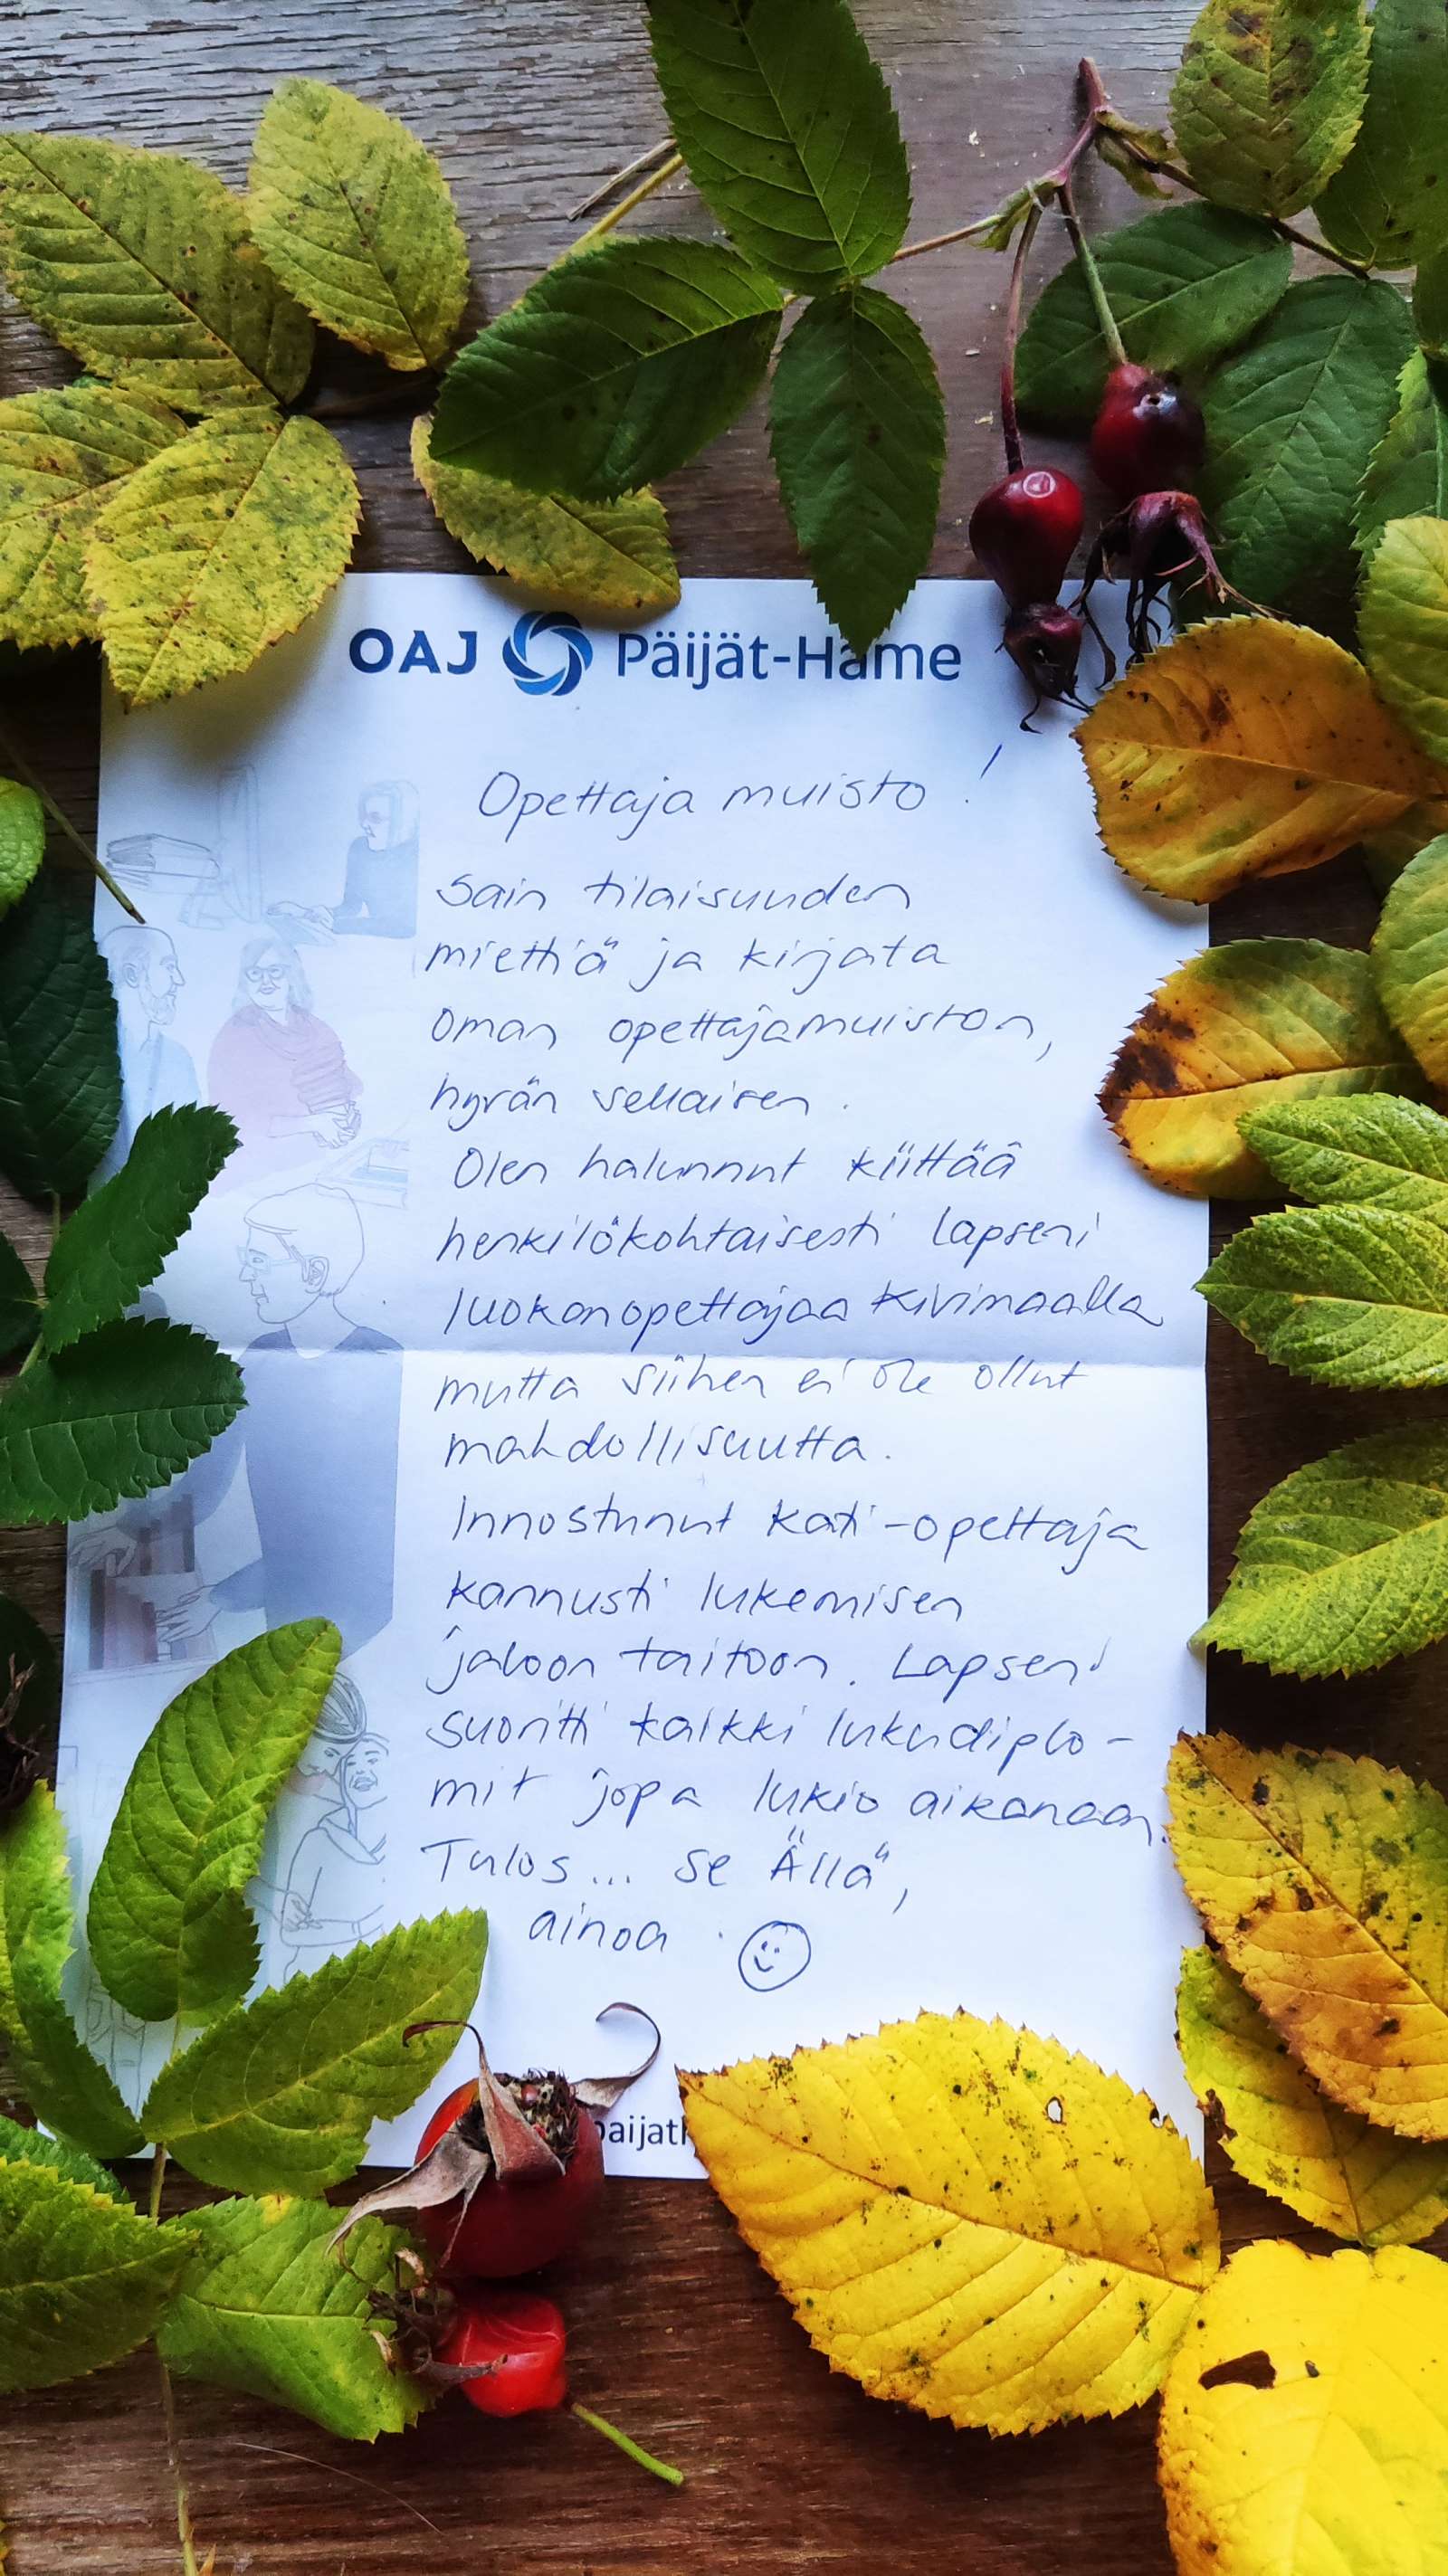 OAJ Päijät-Häme
Opettaja muisto!
Sain tilaisuuden
miettiä ja kirjata
oman opettajamuiston,
hyvän sellaisen.
Olen halunnut kiittää
henkilökohtaisesti lapseni
luokanopettajaa Kivimaalla
mutta siihen ei ole ollut
mahdollisuutta.
Innostunut Kati-opettaja
kannusti lukemisen
jaloon taitoon. Lapseni
suoritti kaikki lukudiplo-
mit jopa lukio aikanaan.
Tulos... se Ällä,
ainoa.